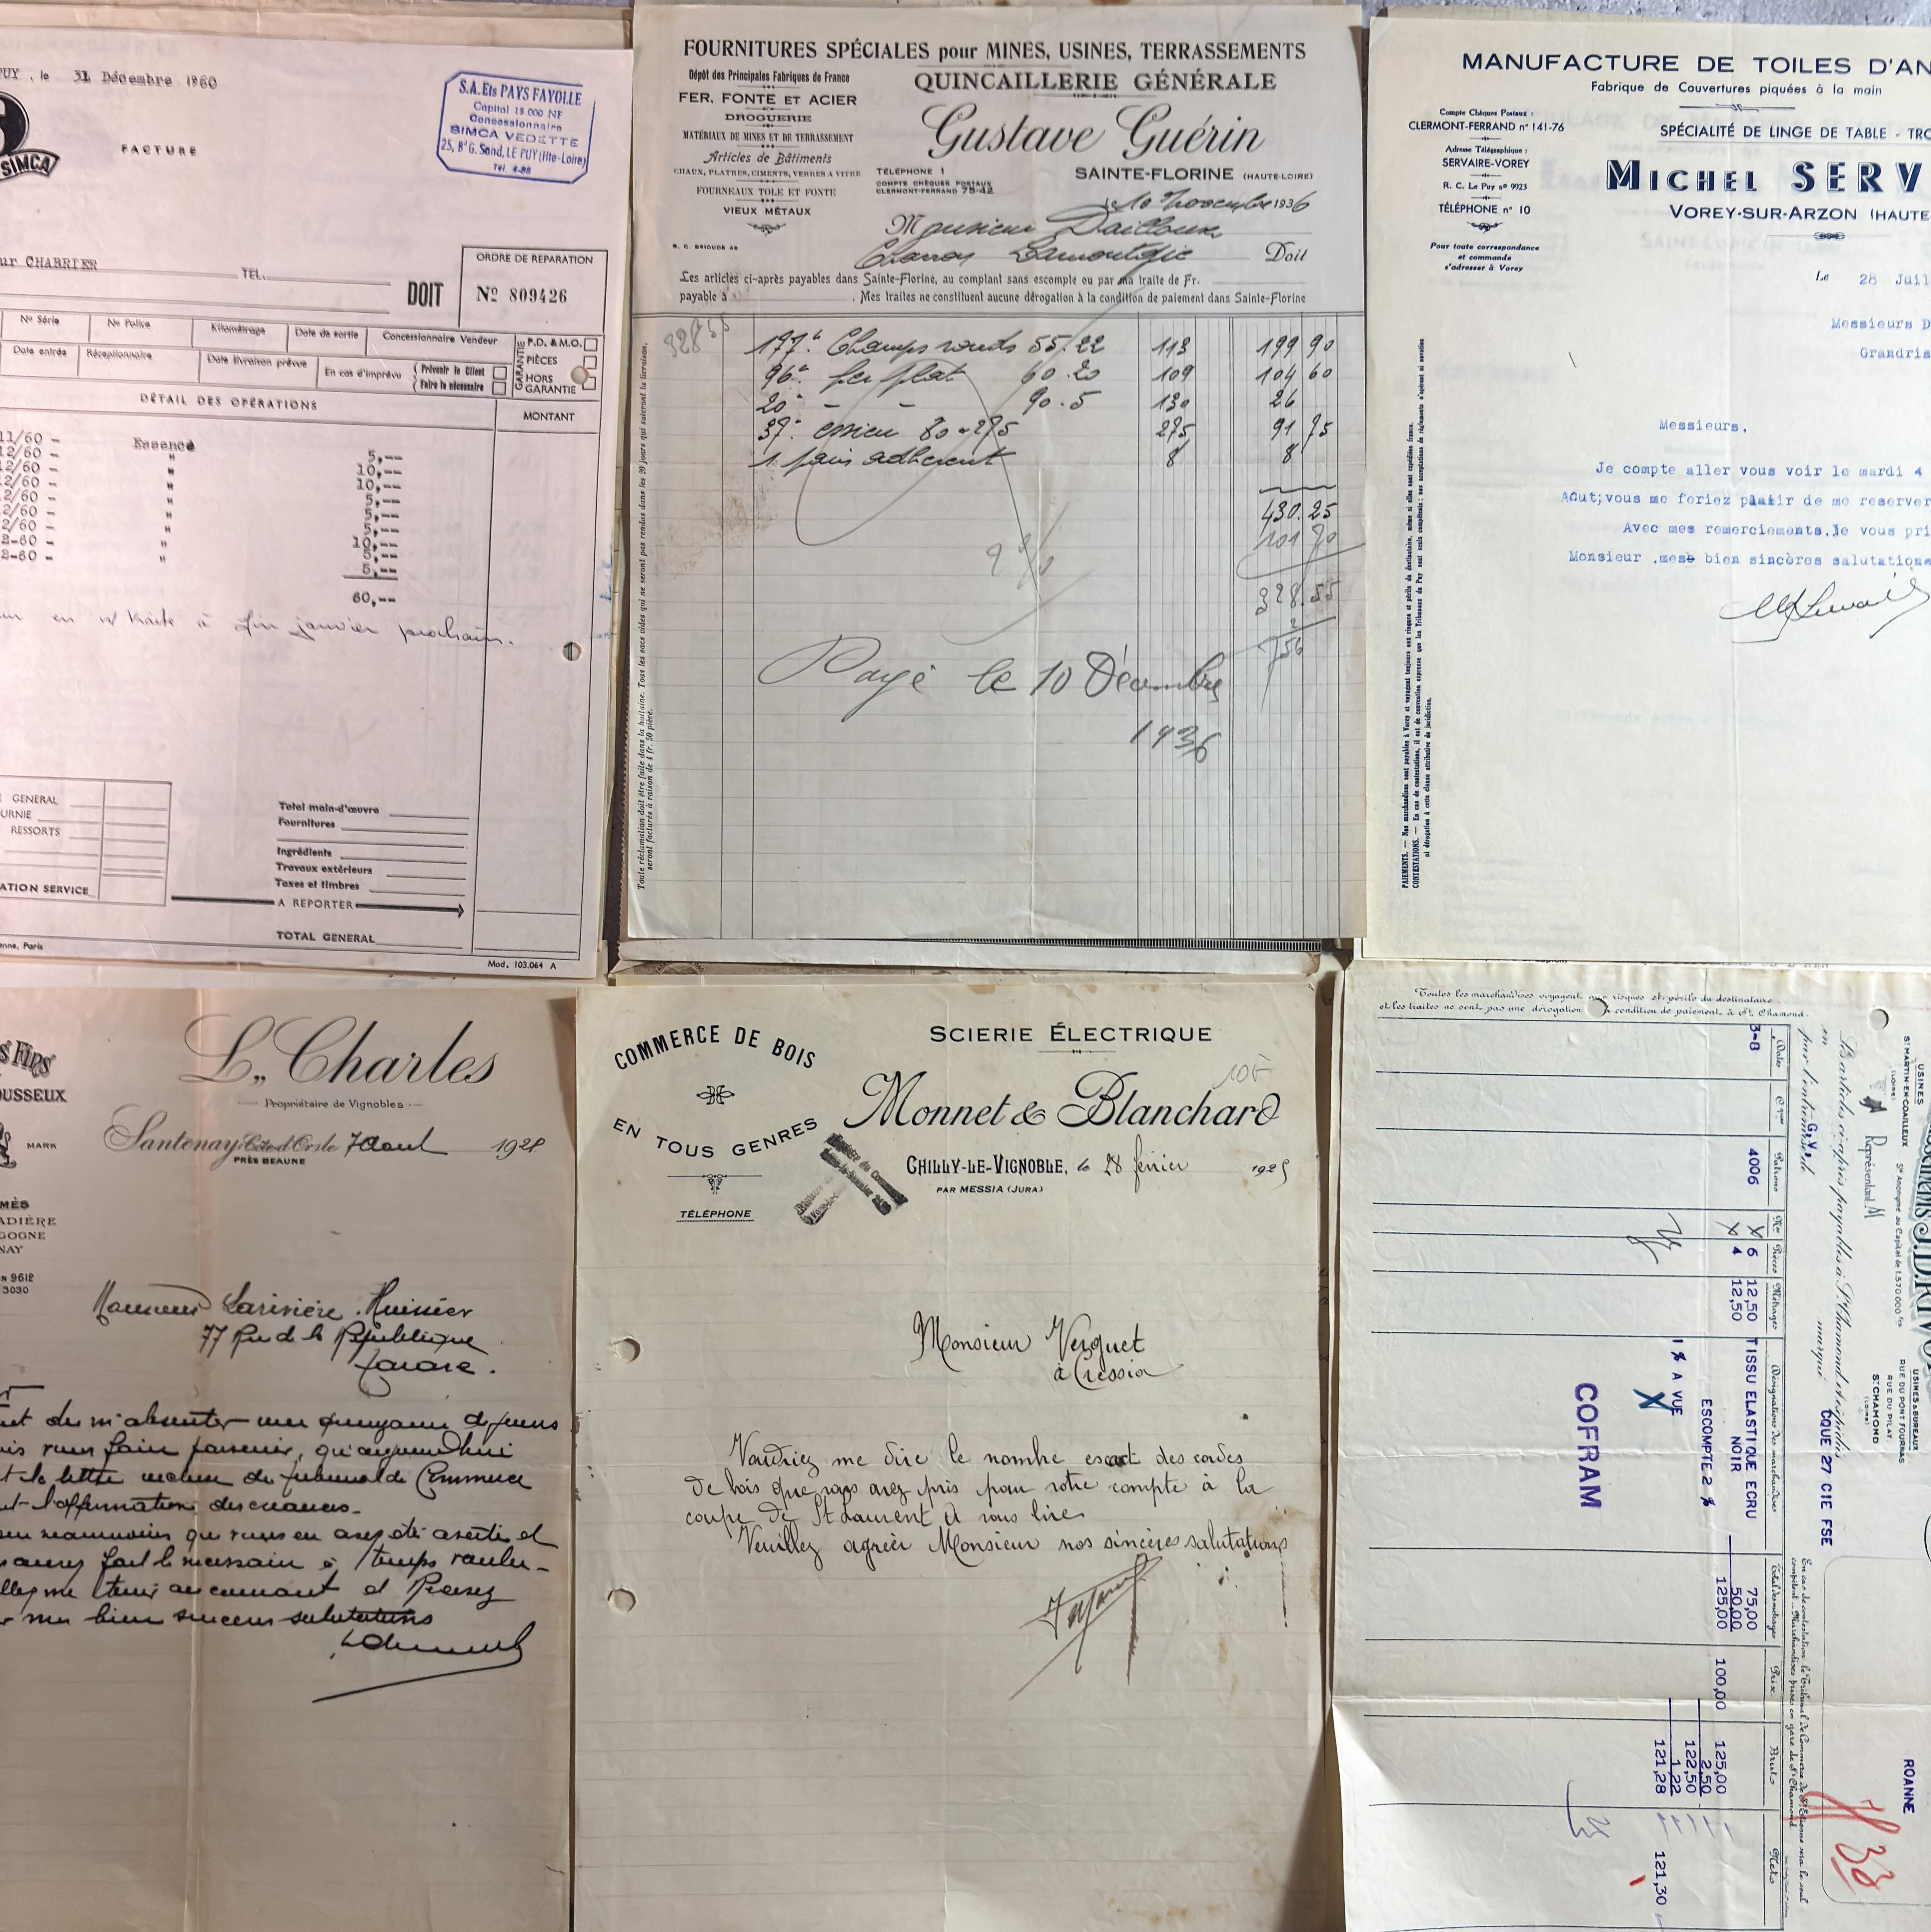 PUY, le 31 Décembre 1960
SIMCA
FACTURE
S.A. Ets PAYS FAYOLLE
Capital 15.000 NF
Concessionnaire
SIMCA VEDETTE
25, Bd G. Sand, LE PUY (Hte-Loire)
Tél. 4-88
ur CHABRIER
TEL.
DOIT
ORDRE DE REPARATION
No 809426
No Série
No Police
Kilométrage
Date de sortie
Concessionnaire Vendeur
GARANTIE
P.D. & M.O.
PIÈCES
HORS GARANTIE
Date entrée
Réceptionnaire
Date livraison prévue
En cas d'imprévu
Prévenir le Client
Faire le nécessaire
DÉTAIL DES OPÉRATIONS
MONTANT
11/60 - Essence 5,--
12/60 - " 10,--
12/60 - " 10,--
12/60 - " 5,--
2/60 - " 5,--
2/60 - " 5,--
2/60 - " 10,--
2-60 - " 5,--
2-60 - " 5,--
60,--
en n/ traite à fin janvier prochain.
GENERAL
URNIE
RESSORTS
ATION SERVICE
Total main-d'œuvre
Fournitures
Ingrédients
Travaux extérieurs
Taxes et timbres
A REPORTER
TOTAL GENERAL
enne, Paris
Mod. 103.064 A
FOURNITURES SPÉCIALES pour MINES, USINES, TERRASSEMENTS
Dépôt des Principales Fabriques de France
QUINCAILLERIE GÉNÉRALE
FER, FONTE ET ACIER
DROGUERIE
MATÉRIAUX DE MINES ET DE TERRASSEMENT
Articles de Bâtiments
CHAUX, PLATRES, CIMENTS, VERRES A VITRE
FOURNEAUX TOLE ET FONTE
VIEUX MÉTAUX
Gustave Guérin
TÉLÉPHONE 1
COMPTE CHÈQUES POSTAUX
CLERMONT-FERRAND 75-42
SAINTE-FLORINE (HAUTE-LOIRE)
le 10 Novembre 1936
Monsieur Dailloux
R. C. BRIOUDE 49
Charron Lamontgie Doit
Les articles ci-après payables dans Sainte-Florine, au comptant sans escompte ou par ma traite de Fr.
payable à . Mes traites ne constituent aucune dérogation à la condition de paiement dans Sainte-Florine
328 55
177k Champs ronds 55.22 113 199 90
96k fer plat 60.20 109 104 60
20k - - 90.5 130 26
37k essieu 80 275 91 75
1 adherent 8 8
430.25
101 70
328.55
2
2 %
Payé le 10 Décembre
1936
Toute réclamation doit être faite dans la huitaine. Tous les sacs vides qui ne seront pas rendus dans les 90 jours qui suivront la livraison,
seront facturés à raison de 4 fr. 50 pièce.
MANUFACTURE DE TOILES D'AN
Fabrique de Couvertures piquées à la main
Compte Chèques Postaux :
CLERMONT-FERRAND n° 141-76
Adresse Télégraphique :
SERVAIRE-VOREY
R. C. Le Puy n° 9923
TÉLÉPHONE n° 10
Pour toute correspondance
et commande
s'adresser à Vorey
SPÉCIALITÉ DE LINGE DE TABLE - TRO
MICHEL SERV
VOREY-SUR-ARZON (HAUTE
Le 28 Juil
Messieurs D
Grandris
Messieurs,
Je compte aller vous voir le mardi 4
Aout;vous me feriez plaisir de me reserver
Avec mes remerciements,je vous pri
Monsieur ,mes bien sincères salutations
PAIEMENTS. — Nos marchandises sont payables à Vorey et voyagent toujours aux risques et périls du destinataire, même si elles sont expédiées franco.
CONTESTATIONS. — En cas de contestations, il est de convention expresse que les Tribunaux du Puy sont seuls compétents ; nos acceptations de règlements n'opérant ni novation
ni dérogation à cette clause attributive de juridiction.
OUSSEUX
MARK
MÈS
ADIÈRE
GOGNE
NAY
9612
3030
L. Charles
Propriétaire de Vignobles
Santenay (Côte-d'Or) le 7 Aout 1928
PRÈS BEAUNE
Monsieur Larivière . Huissier
77 Rue de la République
Tarare.
de m'absenter une quinzaine de jours
vous faire parvenir, qu'aujourd'hui
la lettre du Tribunal de Commerce
l'affirmation des créances.
néanmoins que vous en avez été averti et
aurez fait le nécessaire à temps voulu-
me tenir au courant et
mes bien sincères salutations
COMMERCE DE BOIS
EN TOUS GENRES
TÉLÉPHONE
SCIERIE ÉLECTRIQUE
Monnet & Blanchard
CHILLY-LE-VIGNOBLE, le 28 février 1925
PAR MESSIA (JURA)
Monsieur Verguet
à Cressia
Voudriez me dire le nombre exact des cordes
de bois que vous avez pris pour votre compte à la
coupe de St Laurent A vous lire
Veuillez agréer Monsieur nos sincères salutations
USINES
ST MARTIN-EN-COAILLEUX
(LOIRE)
Sté Anonyme au Capital de 1.570.000 frs
USINES & BUREAUX
RUE DU PONT FOURNAS
RUE DU PILAT
ST CHAMOND
(LOIRE)
Représentant M
Les articles ci-après payables à St Chamond et expédiés
en
par l'entremise de G.V.
marqué
CQUE 27 CIE FSE
ROANNE
En cas de contestation le Tribunal de Commerce de St Etienne sera le seul
compétent. Marchandises prises en gare de St Chamond
Date
Cque
Patrons
Nos
Pièces
Métrages
Désignations des marchandises
Total des métrages
Prix
Bruts
Nets
3-8 4006 6 12,50 TISSU ELASTIQUE ECRU 75,00
4 12,50 NOIR 50,00
125,00 100,00 125,00
ESCOMPTE 2 % 2,50
122,50
1 % A VUE 1,22
121,28 121,30
COFRAM
Toutes les marchandises voyagent aux risques et périls du destinataire
et les traites ne sont pas une dérogation à condition de paiement à St Chamond.